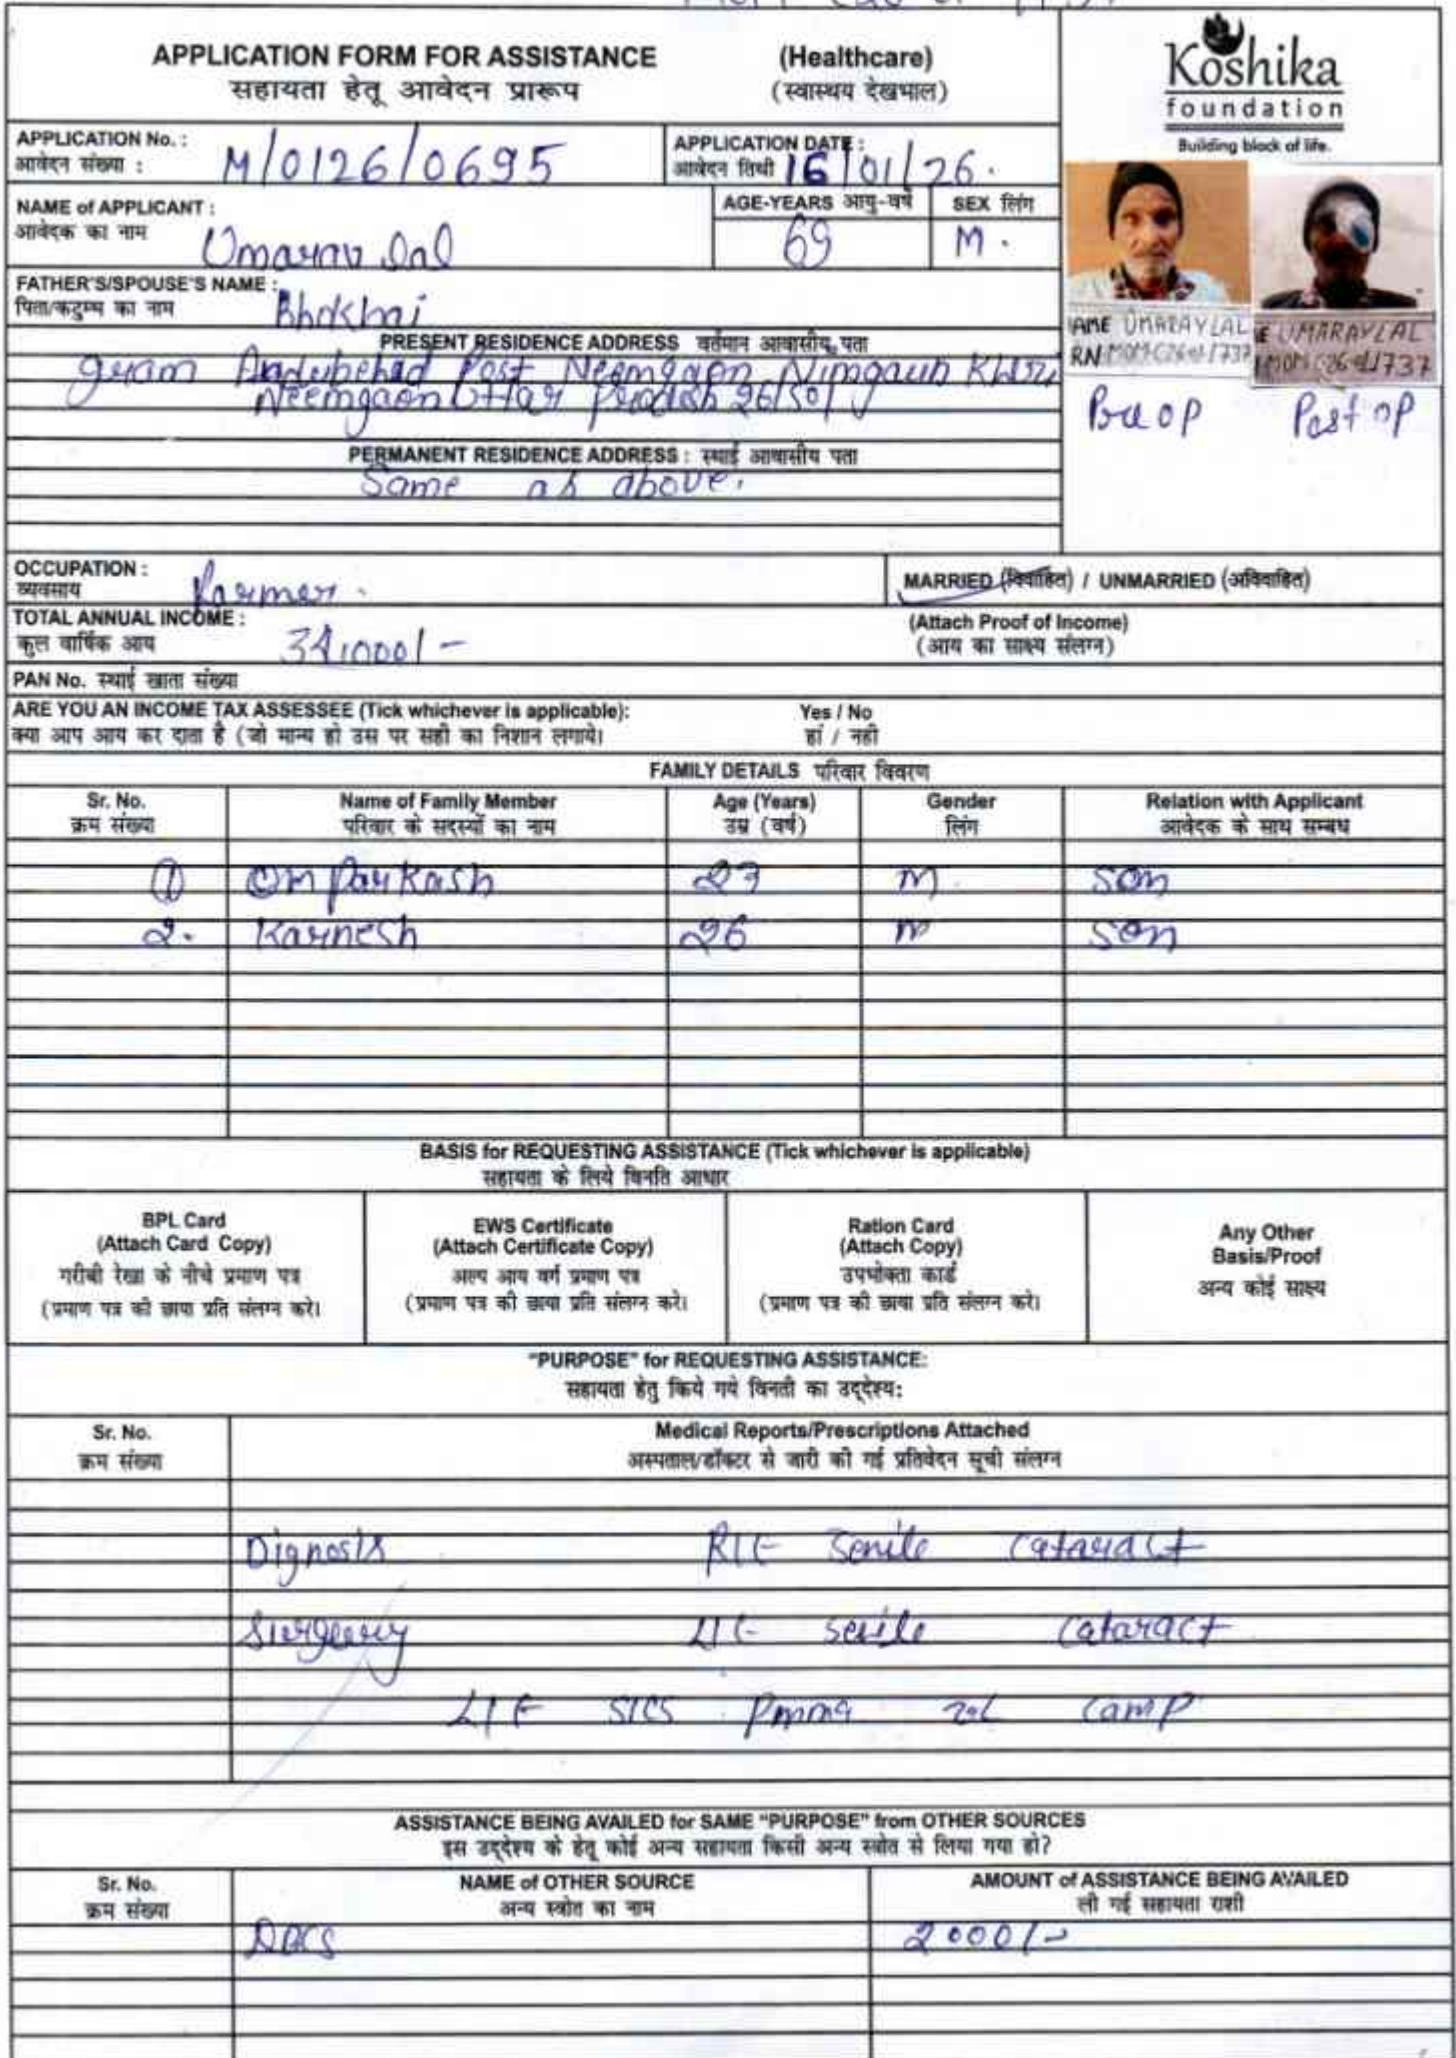 APPLICATION FORM FOR ASSISTANCE (Healthcare)
सहायता हेतू आवेदन प्रारूप (स्वास्थय देखभाल)
Koshika
foundation
Building block of life.
APPLICATION No. : M/0126/0695
आवेदन संख्या :
APPLICATION DATE : 16/01/26.
आवेदन तिथी
NAME of APPLICANT : Umarav Lal
आवेदक का नाम
AGE-YEARS आयु-वर्ष 69
SEX लिंग M.
FATHER'S/SPOUSE'S NAME :
पिता/कटुम्ब का नाम
NAME UMARAYLAL
UMARAYLAL
Pre op Post op
PRESENT RESIDENCE ADDRESS वर्तमान आवासीय पता
gram Post Neemgaon Nimgaun Khiri
Neemgaon Uttar Pradesh 261501
PERMANENT RESIDENCE ADDRESS : स्थाई आवासीय पता
Same as above.
OCCUPATION : Farmer.
व्यवसाय
MARRIED (विवाहित) / UNMARRIED (अविवाहित)
TOTAL ANNUAL INCOME :
कुल वार्षिक आय
(Attach Proof of Income)
(आय का साक्ष्य संलग्न)
PAN No. स्थाई खाता संख्या
ARE YOU AN INCOME TAX ASSESSEE (Tick whichever is applicable): Yes / No
क्या आप आय कर दाता है (जो मान्य हो उस पर सही का निशान लगाये। हां / नही
FAMILY DETAILS परिवार विवरण
Sr. No. Name of Family Member Age (Years) Gender Relation with Applicant
क्रम संख्या परिवार के सदस्यों का नाम उम्र (वर्ष) लिंग आवेदक के साथ सम्बध
1 Om Parkash 27 M. Son
2. Karnesh 26 M Son
BASIS for REQUESTING ASSISTANCE (Tick whichever is applicable)
सहायता के लिये विनति आधार
BPL Card
(Attach Card Copy)
गरीबी रेखा के नीचे प्रमाण पत्र
(प्रमाण पत्र की छाया प्रति संलग्न करे।
EWS Certificate
(Attach Certificate Copy)
अल्प आय वर्ग प्रमाण पत्र
(प्रमाण पत्र की छाया प्रति संलग्न करे।
Ration Card
(Attach Copy)
उपभोक्ता कार्ड
(प्रमाण पत्र की छाया प्रति संलग्न करे।
Any Other
Basis/Proof
अन्य कोई साक्ष्य
"PURPOSE" for REQUESTING ASSISTANCE:
सहायता हेतु किये गये विनती का उद्देश्य:
Sr. No. Medical Reports/Prescriptions Attached
क्रम संख्या अस्पताल/डॉक्टर से जारी की गई प्रतिवेदन सूची संलग्न
Dignosis R/E Senile Cataract
Surgery L/E senile Cataract
L/E SICS Pmma camp
ASSISTANCE BEING AVAILED for SAME "PURPOSE" from OTHER SOURCES
इस उद्देश्य के हेतू कोई अन्य सहायता किसी अन्य स्त्रोत से लिया गया हो?
Sr. No. NAME of OTHER SOURCE AMOUNT of ASSISTANCE BEING AVAILED
क्रम संख्या अन्य स्त्रोत का नाम ली गई सहायता राशी
2000/-